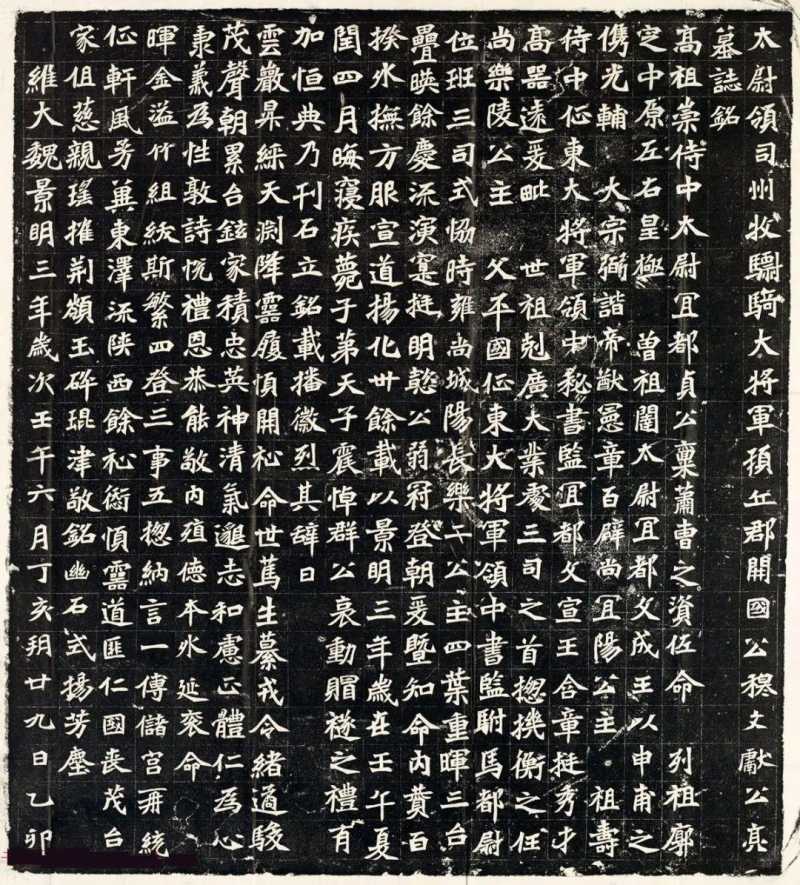 太尉領司州牧驃騎大將軍頓丘郡開國公穆文獻公亮
墓誌銘
高祖崇侍中太尉冝都貞公稟蕭曹之資佐命 列祖廓
定中原左右皇極 曽祖闥太尉冝都文成王以申甫之
儁光輔 大宗弼諧帝猷憲章百辟尚冝陽公主 祖壽
侍中征東大將軍領中秘書監冝都文宣王含章挺秀才
高器遠爰毗 世祖剋廣大業處三司之首摠機衡之任
尚樂陵公主 父平國征東大將軍領中書監駙馬都尉
位班三司式協時雍尚城陽長樂二公主四葉重暉三台
疊暎餘慶流演寔挺明懿公弱冠登朝爰暨知命內賛百
揆外撫方服宣道揚化卅餘載以景明三年歲在壬午夏
閏四月晦寑疾薨于第天子震悼群公哀動賵襚之禮有
加恒典乃刊石立銘載播徽烈其辭曰
雲巖昇綵天淵降靈履順開祉命世篤生纂戎令緒邁駿
茂聲朝累台鉉家積忠英神清氣邈志和慮正體仁為心
秉義為性敦詩悅禮恩恭能敬內殖德本外延衮命
暉金溢竹組紱斯繁四登三事五摠納言一傅儲宮再統
征軒風芳冀東澤流陝西餘祉銜順靈道匪仁國喪茂台
家徂慈親瓊摧荊頟玉碎琨津敬銘幽石式揚芳塵
維大魏景明三年歲次壬午六月丁亥朔廿九日乙卯